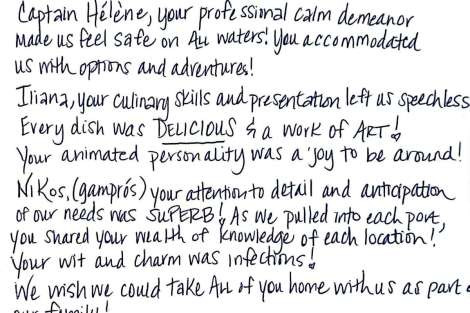 Captain Hélène, your professional calm demeanor
made us feel safe on ALL waters! You accommodated
us with options and adventures!
Iliana, your culinary skills and presentation left us speechless
Every dish was DELICIOUS & a work of ART!
Your animated personality was a joy to be around!
Nikos, (gamprós) your attention to detail and anticipation
of our needs was SUPERB! As we pulled into each port,
you shared your wealth of knowledge of each location!
Your wit and charm was infectious!
We wish we could take ALL of you home with us as part
our family!